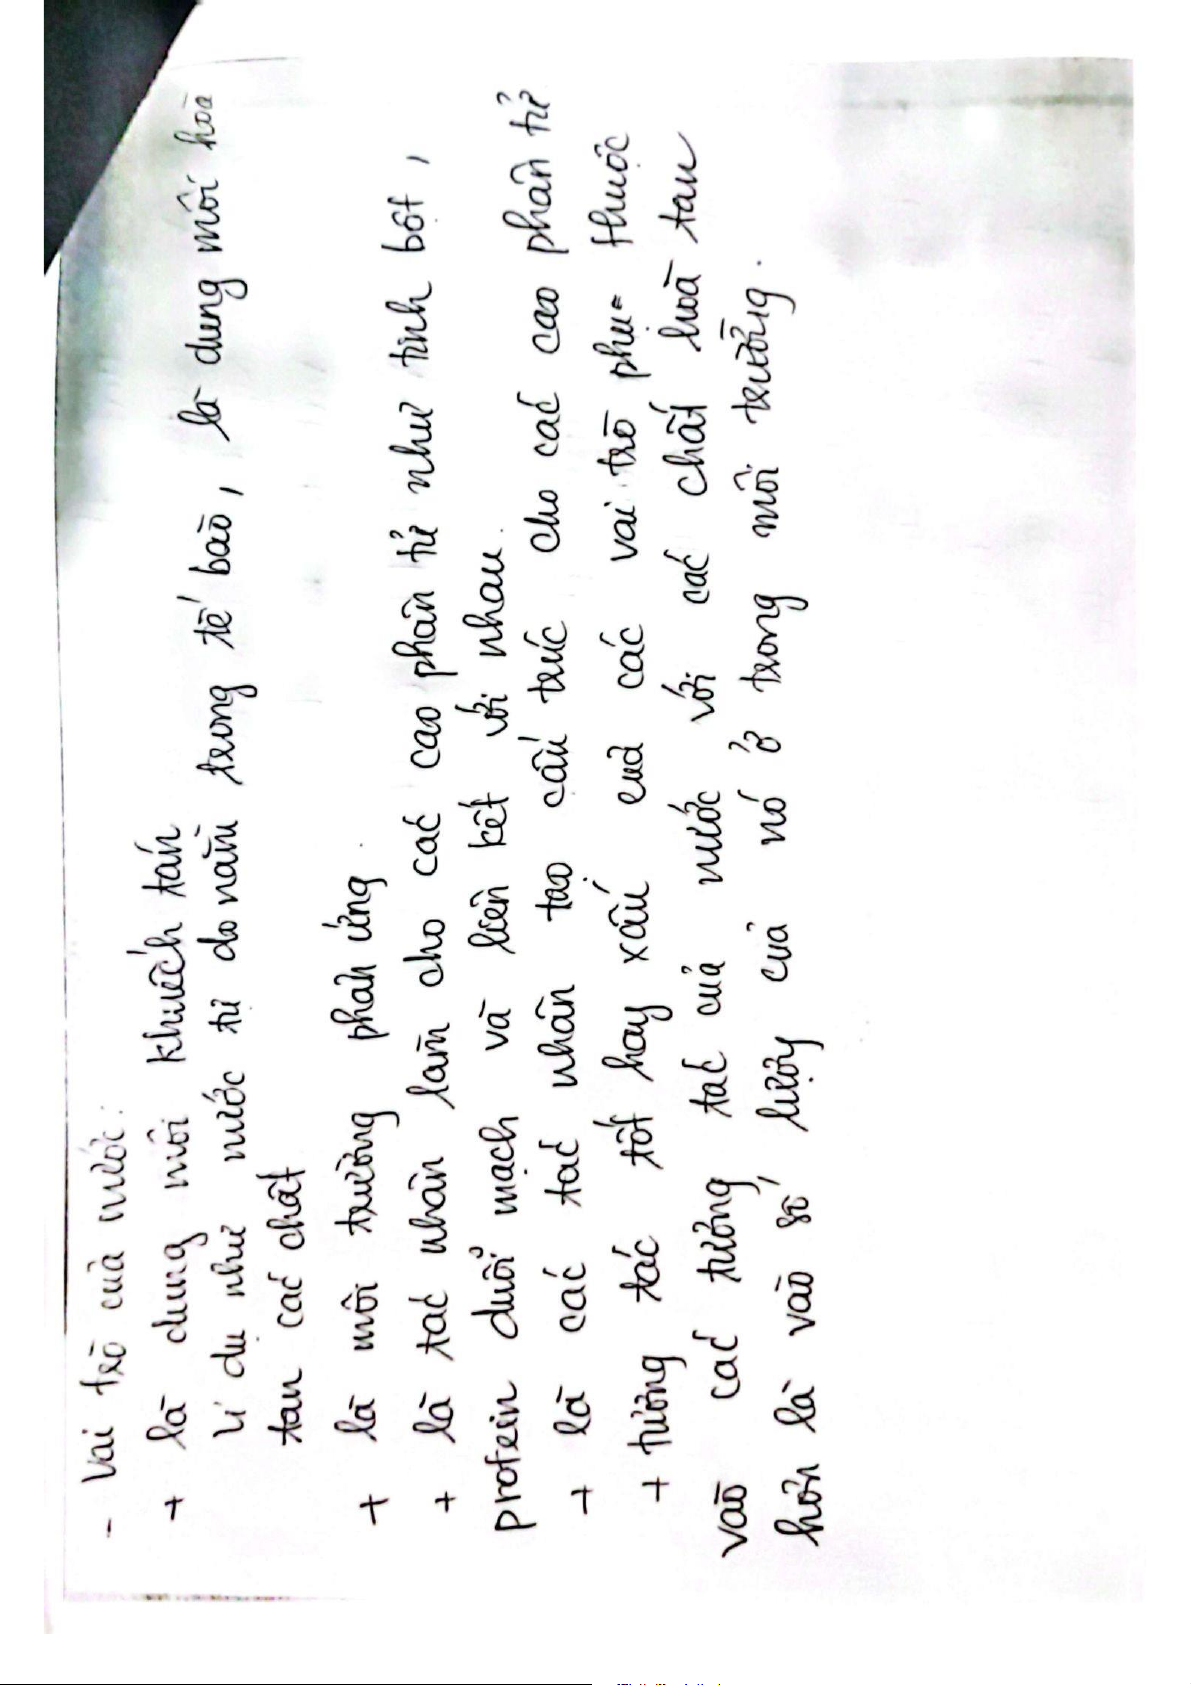 - Vai trò của nước:
+ là dung môi khuếch tán
Ví dụ như nước tự do nằm trong tế bào, là dung môi hoà
tan các chất
+ là môi trường phản ứng.
+ là tác nhân làm cho các cao phân tử như tinh bột,
protein duỗi mạch và liên kết với nhau.
+ là các tác nhân tạo cấu trúc cho các cao phân tử
+ tương tác tốt hay xấu của các vai trò phụ thuộc
vào các tương tác của nước với các chất hoà tan
hơn là vào số lượng của nó ở trong môi trường.